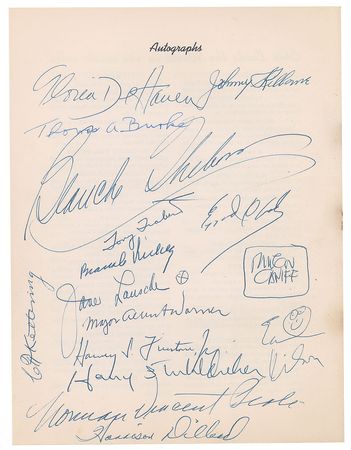 Autographs
Gloria DeHaven Johnny Kilbane
Thomas A Burke
Blanche Thebom
Tony Trabert
Branch Rickey
MILTON
CANIFF
C F Kettering
Frank Lausche
Major Warner
Harvey S. Firestone, Jr.
Earl Wilson
Harry
Norman Vincent Peale
Harrison Dillard